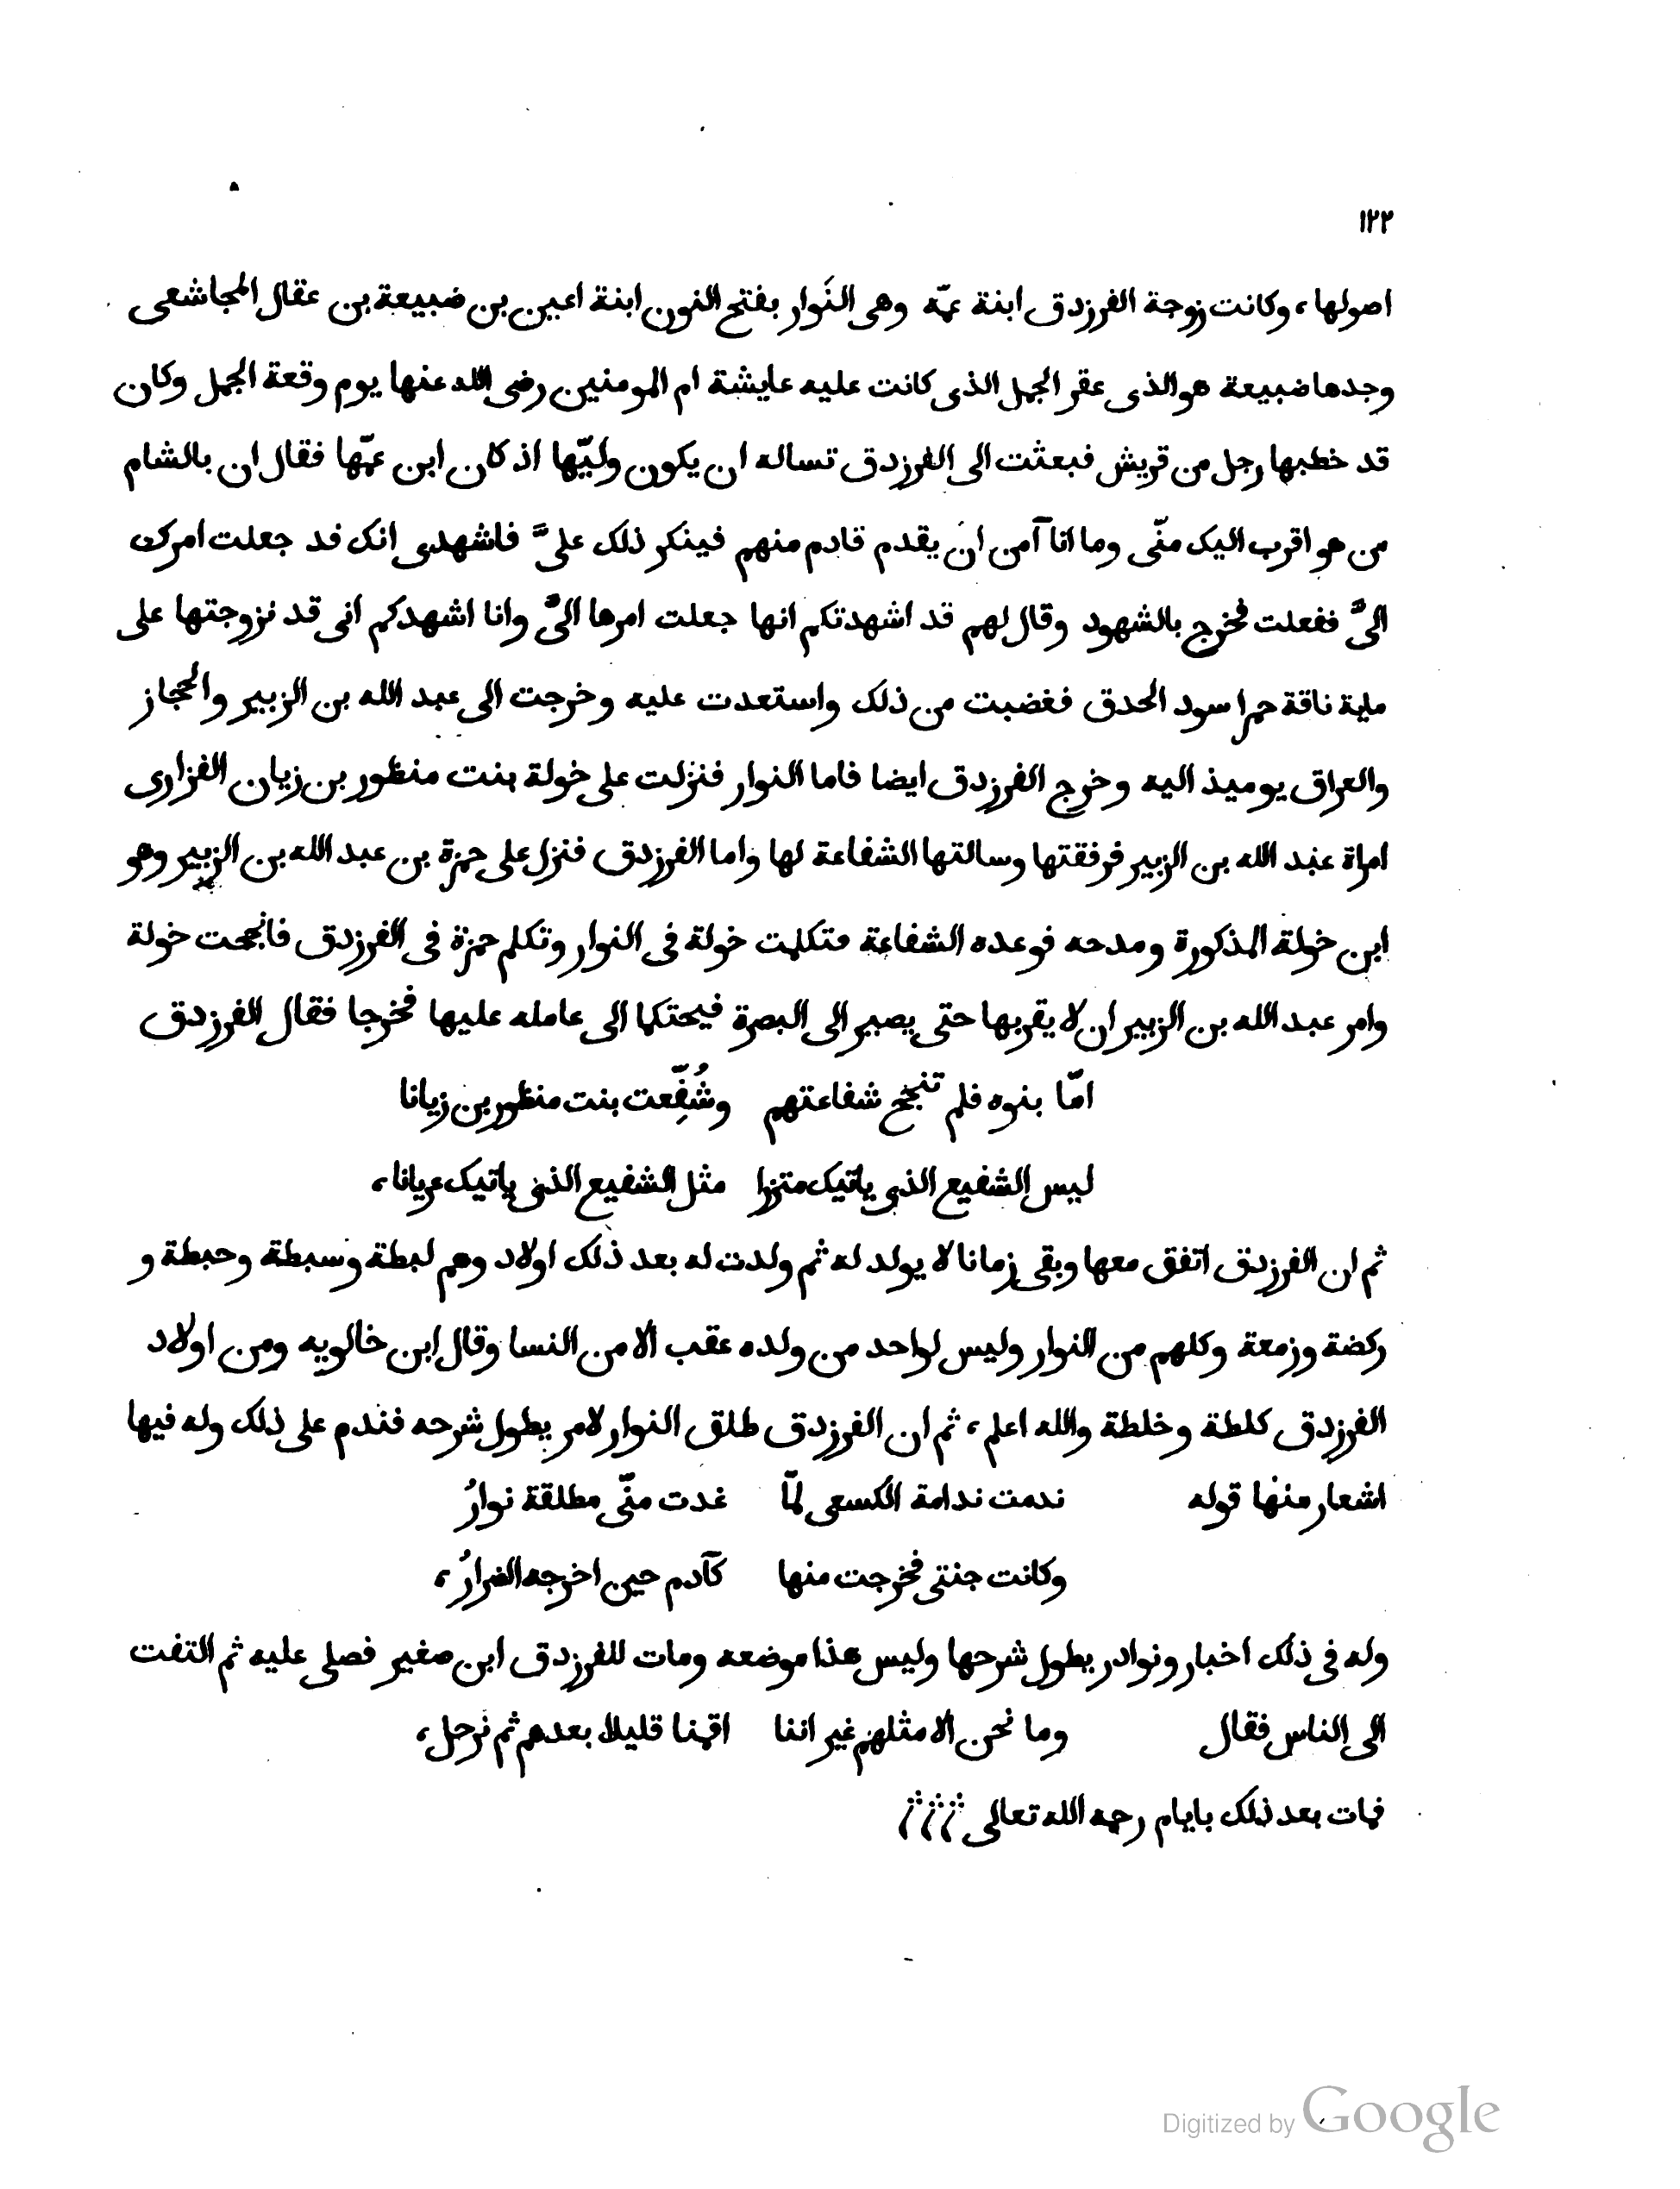 ١٢٢
اصولها، وكانت زوجة الفرزدق ابنة عمّه وهى النَوار بفتح النون ابنة اعين بن ضبيعة بن عقال المجاشعى
وجدها ضبيعة هو الذى عقر الجمل الذى كانت عليه عايشة ام المومنين رضى الله عنها يوم وقعة الجمل وكان
قد خطبها رجل من قريش فبعثت الى الفرزدق تساله ان يكون وليّها اذ كان ابن عمّها فقال ان بالشام
من هو اقرب اليك منّى وما انا آمن ان يقدم قادم منهم فينكر ذلك علىَّ فاشهدى انك قد جعلت امرك
الىَّ ففعلت فخرج بالشهود وقال لهم قد اشهدتكم انها جعلت امرها الىَّ وانا اشهدكم انى قد تزوجتها على
ماية ناقة حمرا سود الحدق فغضبت من ذلك واستعدت عليه وخرجت الى عبد الله بن الزبير والحجاز
والعراق يوميذ اليه وخرج الفرزدق ايضا فاما النوار فنزلت على خولة بنت منظور بن زبان الفزارى
امراة عبد الله بن الزبير فرفقتها وسالتها الشفاعة لها واما الفرزدق فنزل على حمزة بن عبد الله بن الزبير وهو
ابن خولة المذكورة ومدحه فوعده الشفاعة فتكلمت خولة فى النوار وتكلم حمزة فى الفرزدق فانجحت خولة
وامر عبد الله بن الزبير ان لا يقربها حتى يصير الى البصرة فيحتكما الى عامله عليها فخرجا فقال الفرزدق
امّا بنوه فلم تنجح شفاعتهم وشُفِّعت بنت منظور بن زبانا
ليس الشفيع الذى ياتيك متزرا مثل الشفيع الذى ياتيك عريانا،
ثم ان الفرزدق اتفق معها وبقى زمانا لا يولد له ثم ولدت له بعد ذلك اولاد وهم لبطة وسبطة وحبطة و
ركضة وزمعة وكلهم من النوار وليس لواحد من ولده عقب الا من النسا وقال ابن خالويه ومن اولاد
الفرزدق كلطة وخلطة والله اعلم، ثم ان الفرزدق طلق النوار لامر يطول شرحه فندم على ذلك وله فيها
اشعار منها قوله ندمت ندامة الكسعى لمّا غدت منّى مطلقة نوارُ
وكانت جنتى فخرجت منها كآدم حين اخرجه الضرارُ،
وله فى ذلك اخبار ونوادر يطول شرحها وليس هذا موضعه ومات للفرزدق ابن صغير فصلى عليه ثم التفت
الى الناس فقال وما نحن الا مثلهم غير اننا اقمنا قليلا بعدهم ثم نرحل،
فمات بعد ذلك بايام رحمه الله تعالى
Digitized by Google